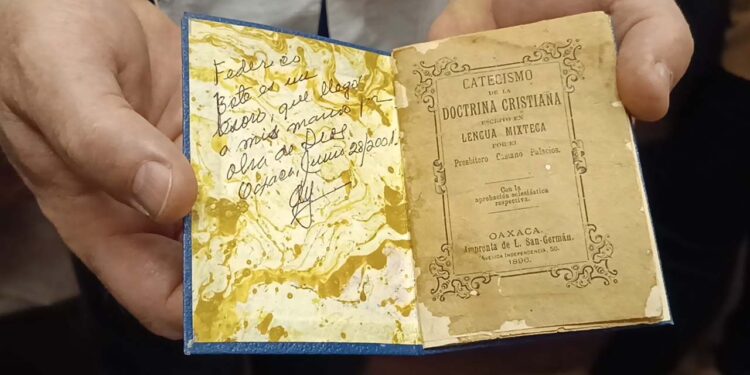 Federico
Este es un
tesoro, que llegó
a mis manos por
obra de Dios.
Oaxaca, Junio 28/2001.
CATECISMO
DE LA
DOCTRINA CRISTIANA
ESCRITO EN
LENGUA MIXTECA
POR EL
Presbítero Casiano Palacios.
Con la
aprobación eclesiástica
respectiva.
OAXACA.
Imprenta de L. San-Germán.
AVENIDA INDEPENDENCIA, 50.
1896.